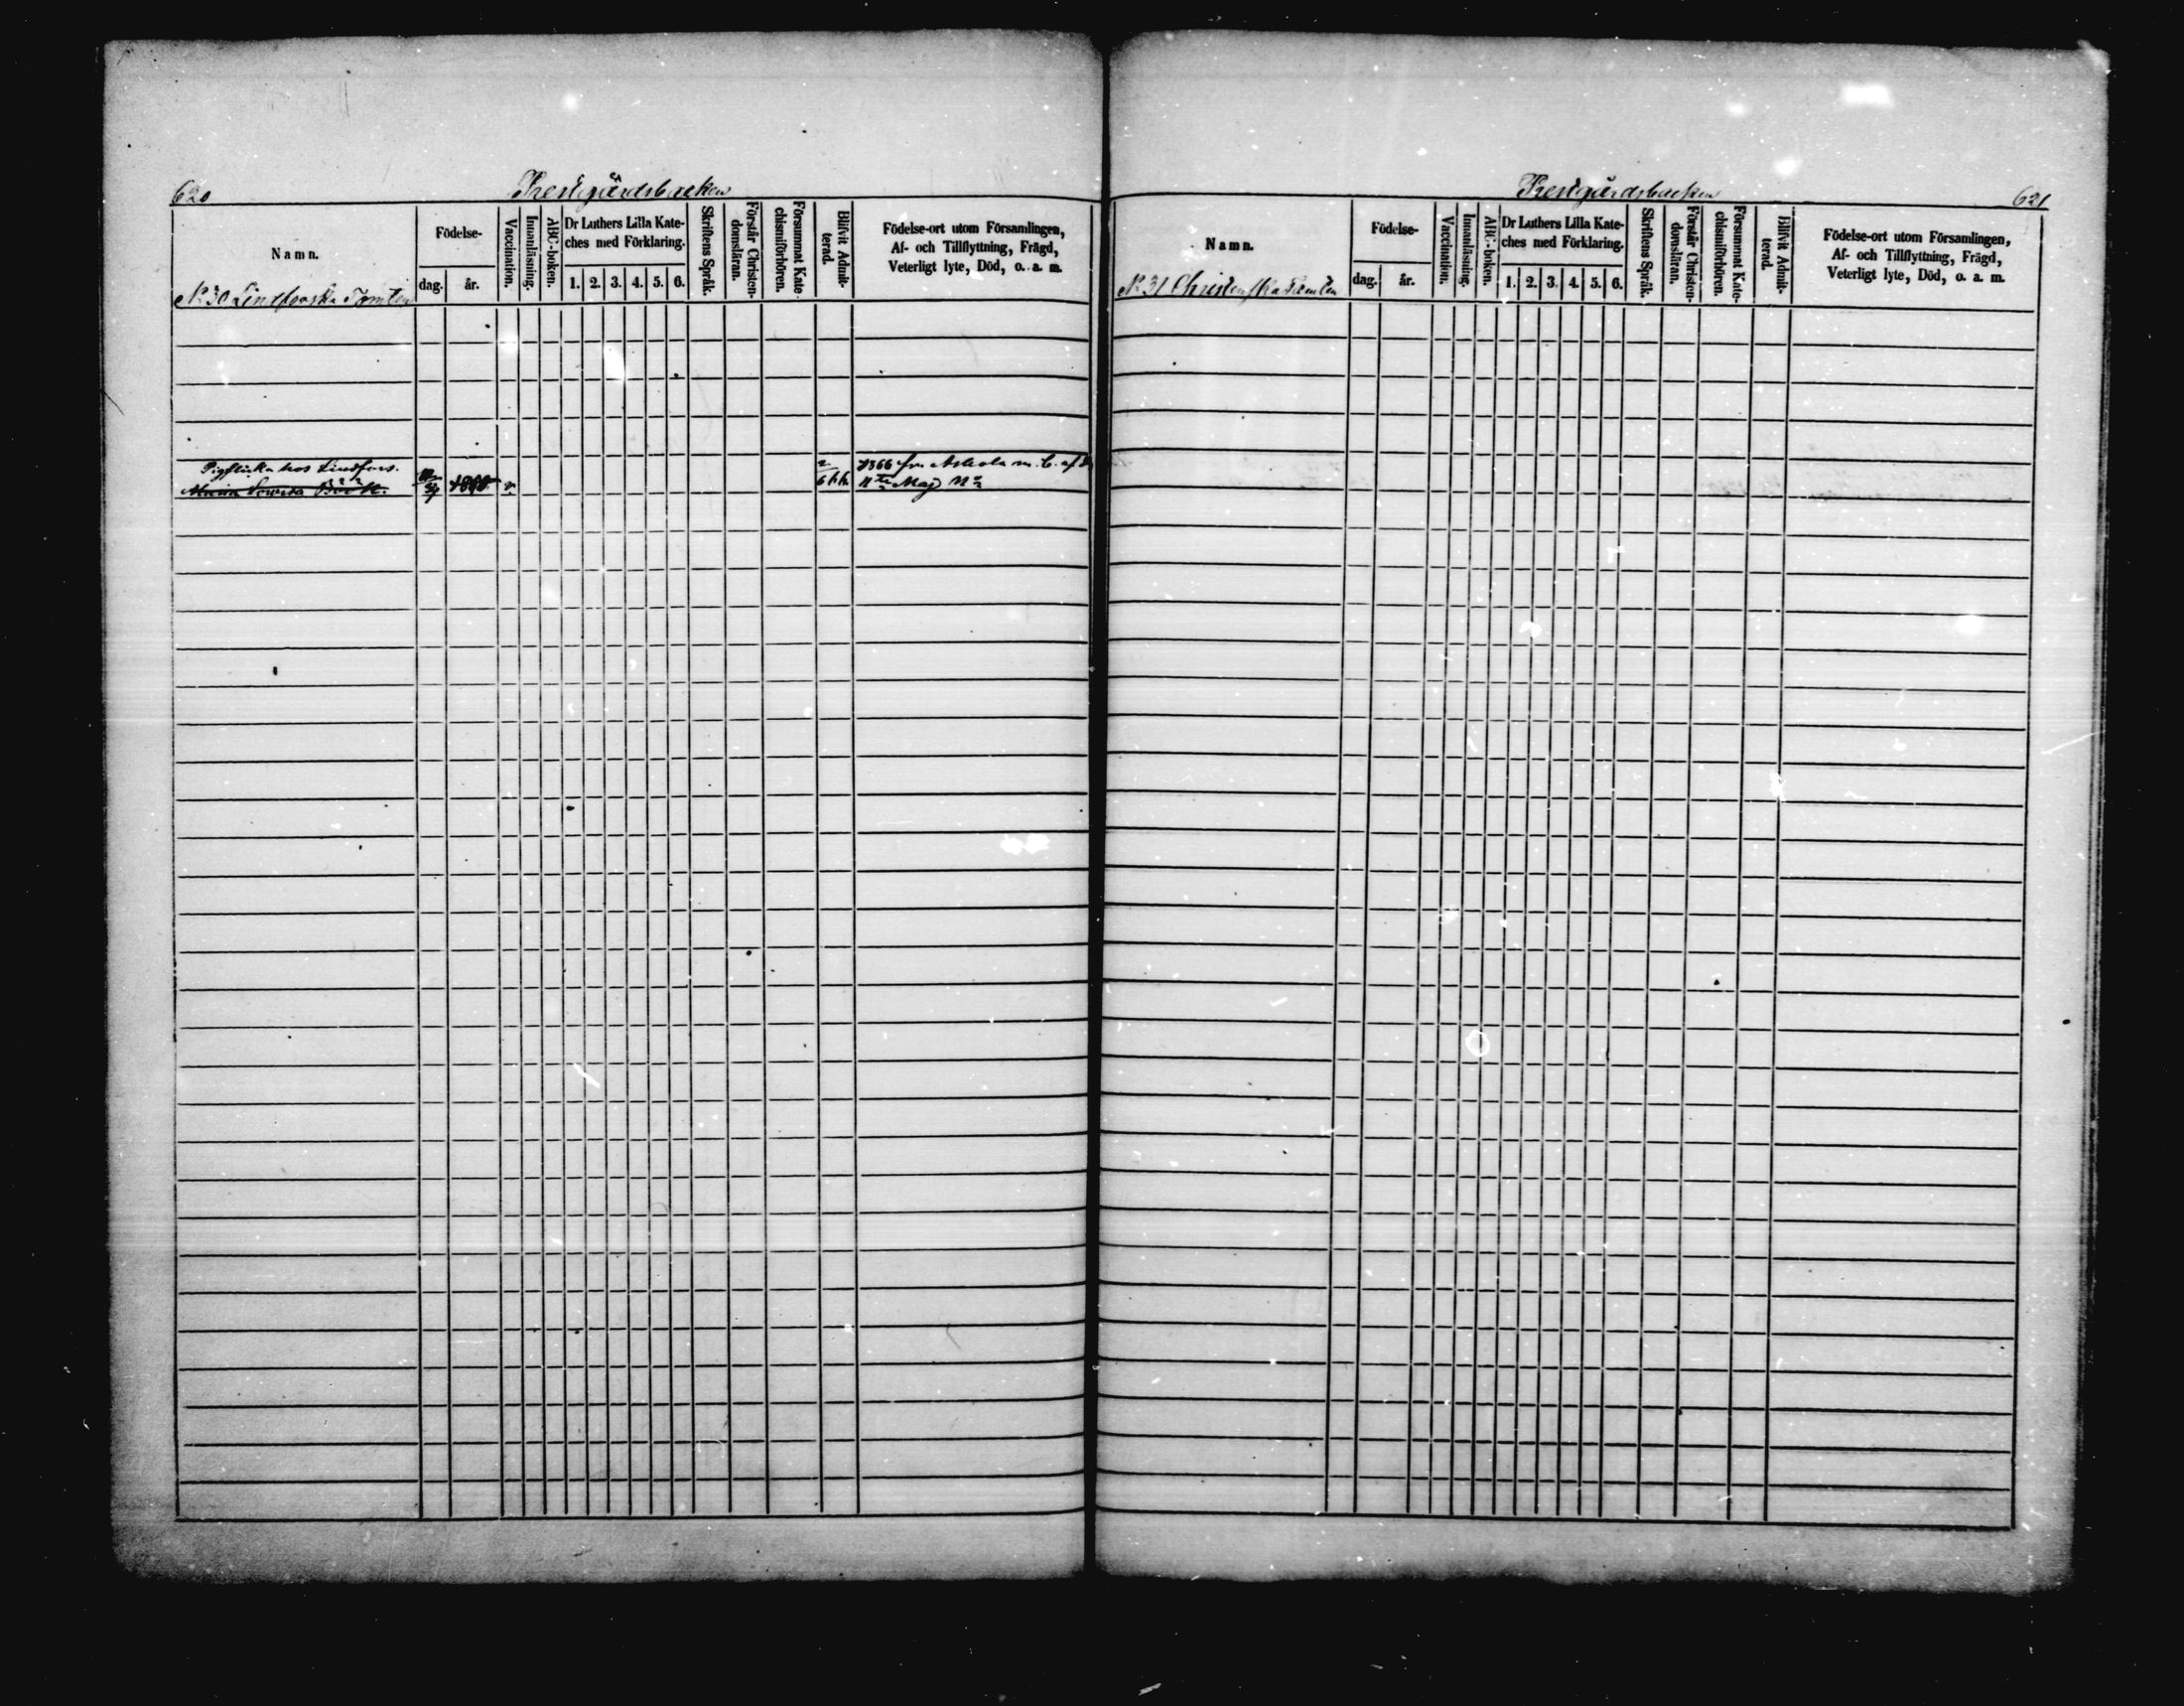 620
Prestgårdsbacken
Namn.
Födelse-
dag.
år.
Vaccination.
Innanläsning.
ABC-boken.
Dr Luthers Lilla Kate-
ches med Förklaring.
1. 2. 3. 4. 5. 6.
Skriftens Språk.
Förstår Christen-
domsläran.
Försummat Kate-
chismiförhören.
Blifvit Admit-
terad.
Födelse-ort utom Församlingen,
Af- och Tillflyttning, Frägd,
Veterligt lyte, Död, o. a. m.
No 30 Lindforska Tomten
Pigflicka hos Lindfors. 1866 fr. Askola m. b. af d.
Maria Lovisa v. 11te Maj
Prestgårdsbacken
621
Namn.
Födelse-
dag.
år.
Vaccination.
Innanläsning.
ABC-boken.
Dr Luthers Lilla Kate-
ches med Förklaring.
1. 2. 3. 4. 5. 6.
Skriftens Språk.
Förstår Christen-
domsläran.
Försummat Kate-
chismiförhören.
Blifvit Admit-
terad.
Födelse-ort utom Församlingen,
Af- och Tillflyttning, Frägd,
Veterligt lyte, Död, o. a. m.
No 31 Tomten